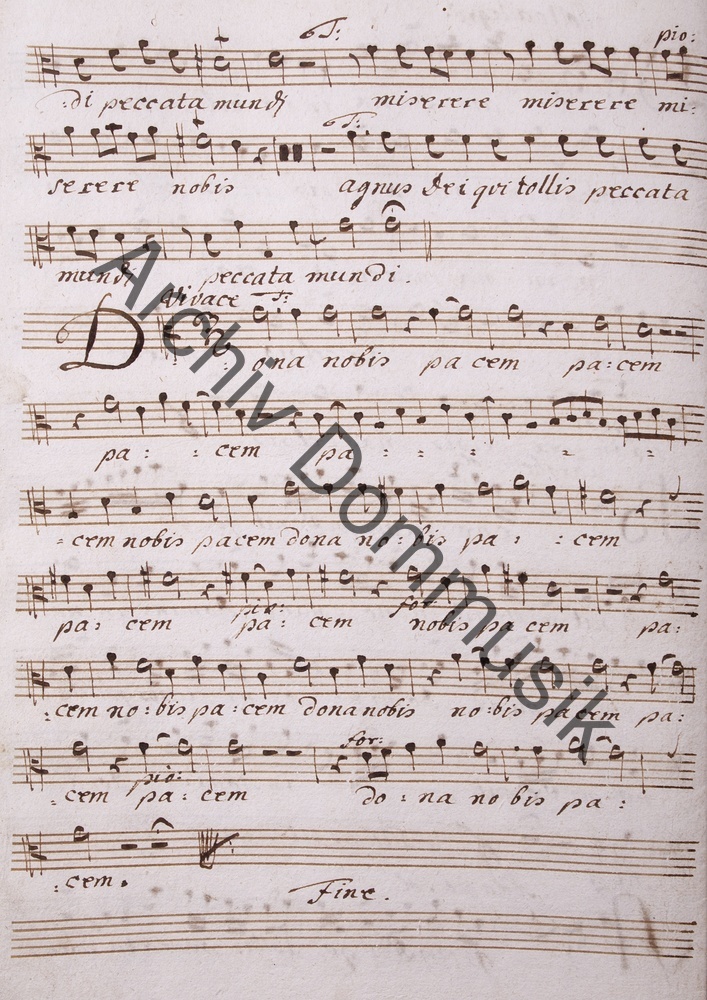 T: pio:
:di peccata mundi miserere miserere mi:
T:
serere nobis agnus Dei qui tollis peccata
mundi peccata mundi.
Vivace T:
Dona nobis pacem pa:cem
pa: : cem pa: : : : :
:cem nobis pacem dona no:bis pa : : cem
pio: for:
pa: cem pa: cem nobis pa cem pa:
:cem no:bis pa:cem dona nobis no:bis pacem pa:
pio: for:
:cem pa:cem do:na nobis pa:
:cem.
Fine.
Archiv Dommusik